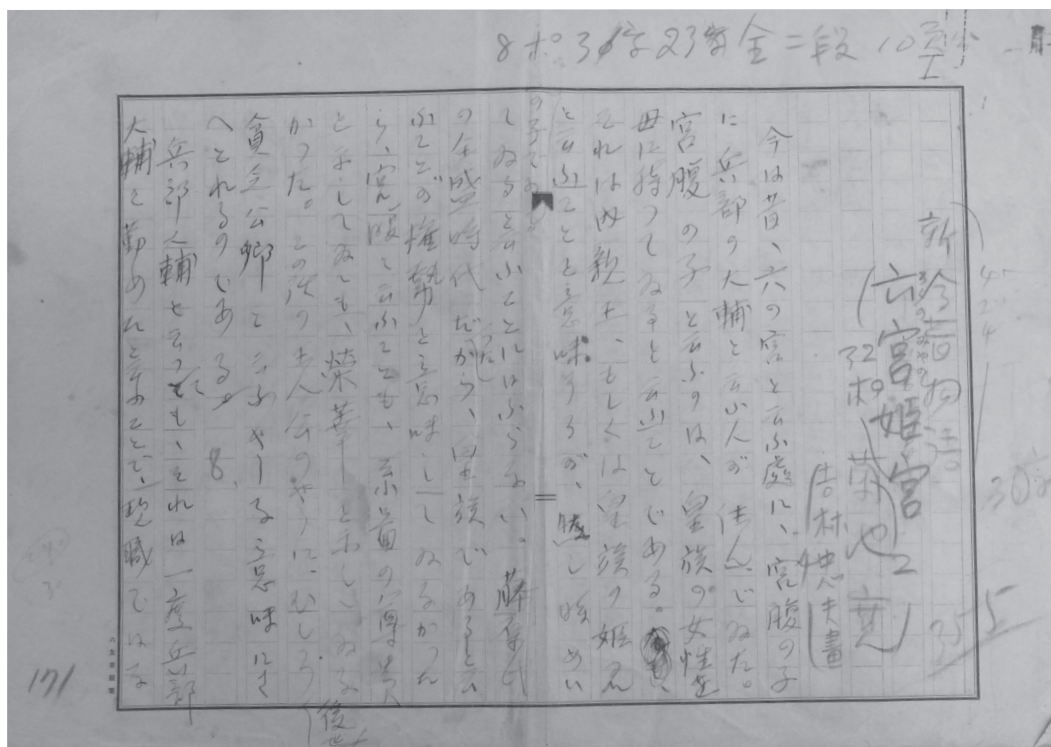 8ポ 34字 23行 全二段 10頁
新今昔物語
六宮姫宮
32ポ 菊池寛
吉村忠夫畫
今は昔、六の宮と云ふ處に、宮腹の子
に兵部の大輔と云ふ人が住んでゐた。
宮腹の子と云ふのは、皇族の女性を
母に持つてゐると云ふことである。
それは内親王、もしくは皇族の姫君
と云ふことを意味するが、然し時めい
てゐると云ふことにはならない。藤原氏
の全盛時代だつたから、皇族であると云
ふことが権勢を意味してゐなかつた
ら、宮腹と云ふことも、系圖の高貴
を示してゐても、榮華を示してゐな
かつた。この話の主人公のやうに、むしろ
後世
貧乏公卿と云ふやうな意味にさ
へとれるのである。
兵部大輔と云つても、それは一度兵部
大輔を勤めたと云ふことで、現職ではな
171